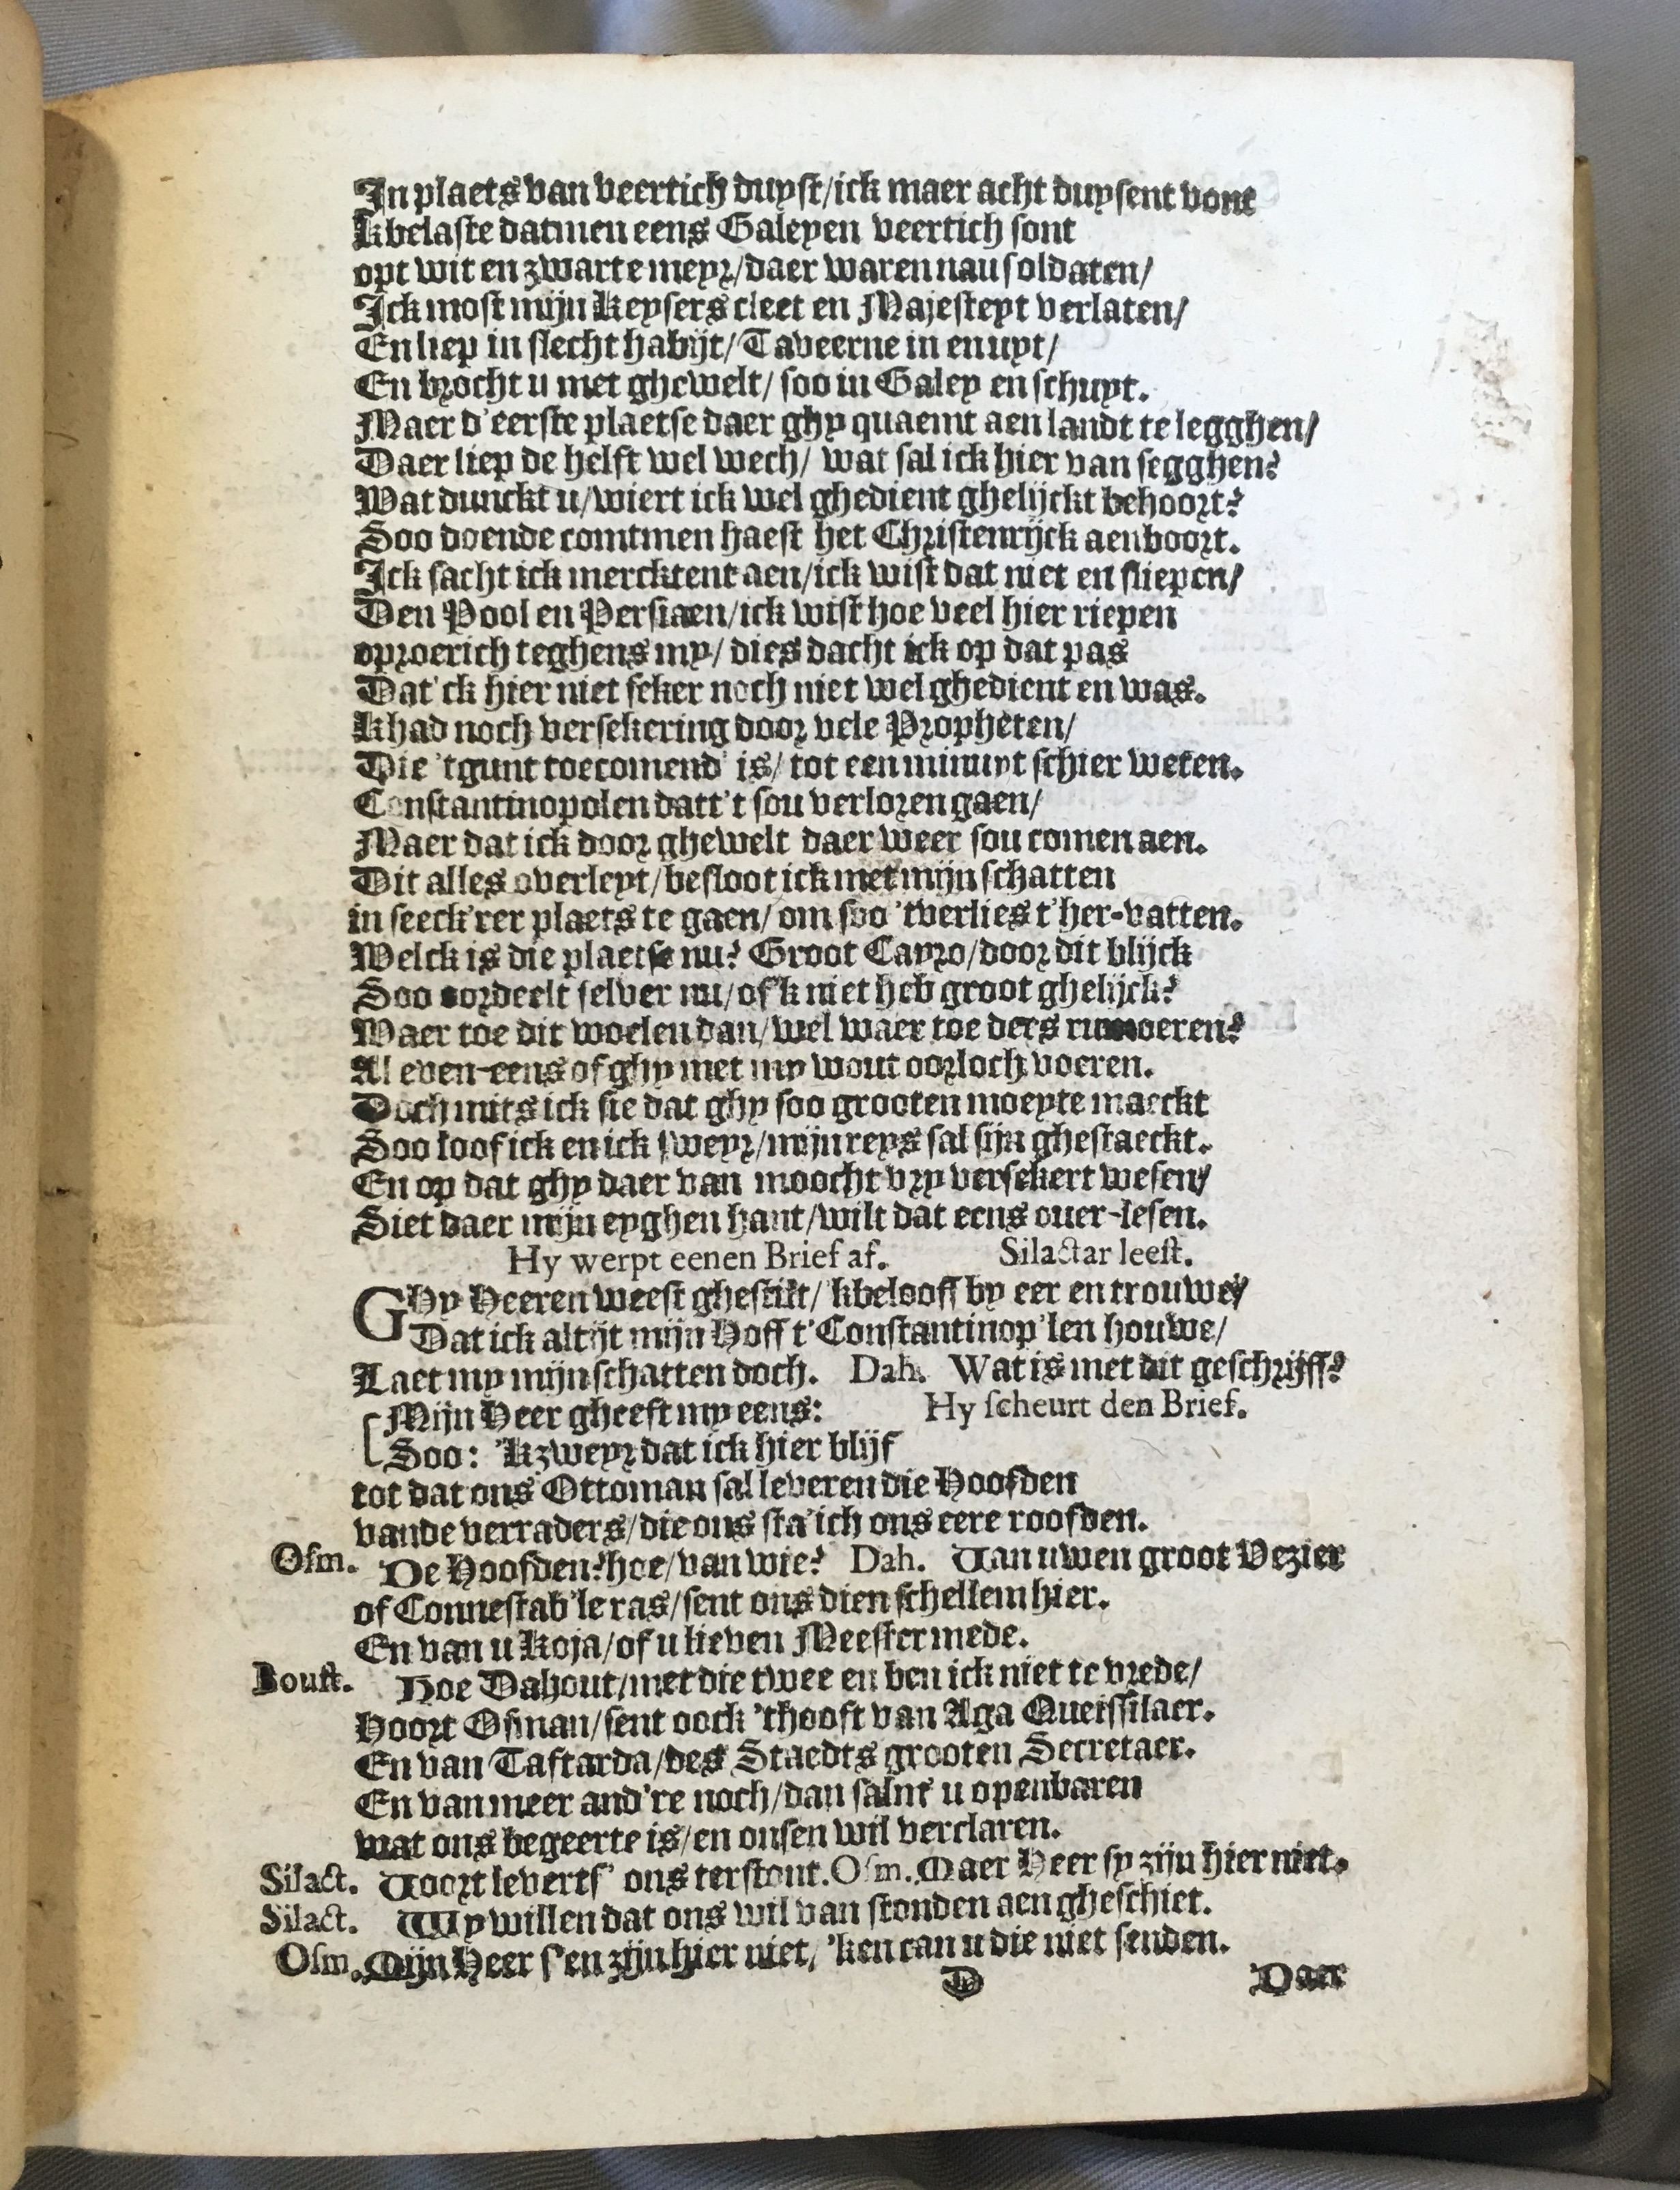 In plaets van veertich duyst/ick maer acht duysent vont
Kbelaste datmen eens Galeyen veertich sont
opt wit en zwarte meyr/daer waren nau soldaten/
Ick most mijn Keysers cleet en Majesteyt verlaten/
En liep in slecht habijt/Taveerne in en uyt/
En brocht u met ghewelt/ soo in Galey en schuyt.
Maer d'eerste plaetse daer ghy quaemt aen landt te legghen/
Daer liep de helft wel wech/ wat sal ick hier van segghen?
Wat dunckt u/wiert ick wel ghedient ghelijckt behoort?
Soo doende comtmen haest het Christenrijck aenboort.
Ick sacht ick mercktent aen/ick wist dat niet en sliepen/
Den Pool en Persiaen/ick wist hoe veel hier riepen
oproerich teghens my/ dies dacht ick op dat pas
Dat'ck hier niet seker noch niet wel ghedient en was.
Khad noch versekering door vele Propheten/
Die 'tgunt toecomend' is/ tot een minuyt schier weten.
Constantinopolen datt't sou verloren gaen/
Maer dat ick door ghewelt daer weer sou comen aen.
Dit alles overleyt/besloot ick met mijn schatten
in seeck'rer plaets te gaen/ om soo 'tverlies t'her-vatten.
Welck is die plaetse nu? Groot Cayro/door dit blijck
Soo oordeelt selver nu/of'k niet heb groot ghelijck?
Waer toe dit woelen dan/wel waer toe dees rumoeren?
Al even-eens of ghy met my wout oorloch voeren.
Doch mits ick sie dat ghy soo grooten moeyte maeckt
Soo loof ick en ick sweyr/mijn reys sal sijn ghestaeckt.
En op dat ghy daer van moocht vry versekert wesen/
Siet daer mijn eyghen hant/wilt dat eens over-lesen.
Hy werpt eenen Brief af. Silactar leest.
GHy Heeren weest ghestilt/'kbelooff by eer en trouwe/
Dat ick altijt mijn Hoff t'Constantinop'len houwe/
Laet my mijn schatten doch. Dah. Wat is met dit geschrijff?
Mijn Heer gheeft my eens: Hy scheurt den Brief.
Soo: 'Kzweyr dat ick hier blijf
tot dat ons Ottoman sal leveren die Hoofden
vande verraders/die ons sta'ich ons eere roofden.
Osm. De Hoofden? hoe/van wie? Dah. Van uwen groot Vezier
of Connestab'le ras/sent ons dien schellem hier.
En van u Koja/of u lieven Meester mede.
Boust. Hoe Dahout/met die twee en ben ick niet te vrede/
Hoort Osman/sent oock 'thooft van Aga Queissilaer.
En van Taftarda/des Staedts grooten Secretaer.
En van meer and're noch/dan salmt' u openbaren
wat ons begeerte is/en onsen wil verclaren.
Silact. Voort levertf' ons terstont. Osm. Maer Heer sy zijn hier niet.
Silact. Wy willen dat ons wil van stonden aen gheschiet.
Osm. Mijn Heer s'en zijn hier niet, 'ken can u die niet senden.
D Daer